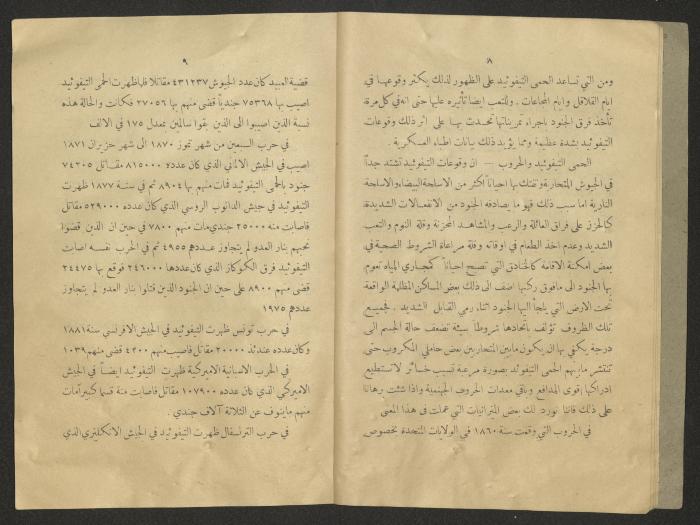 ٨
ومن التي تساعد الحمى التيفوئيد على الظهور لذلك يكثر وقوعها في
ايام القلاقل وايام المجاعات . وللتعب ايضا تأثيره عليها حتى انه في كل مرة
تأخذ فرق الجنود باجراء تمريناتها تحدث بها على اثر ذلك وقوعات
التيفوئيد بشدة عظيمة ومما يؤيد ذلك بيانات اطباء العسكرية .
الحمى التيفوئيد والحروب — ان وقوعات التيفوئيد تشتد جداً
في الجيوش المتحاربة وتفتك بها احياناً اكثر من الاسلحة البيضاء والاسلحة
النارية اما سبب ذلك فهو ما يصادفه الجنود من الانفعالات الشديدة
كالحزن على فراق العائلة والرعب والمشاهد المحزنة وقلة النوم والتعب
الشديد وعدم اخذ الطعام في اوقاته وقلة مراعاة الشروط الصحية في
بعض امكنة الاقامة كالخنادق التي تصبح احياناً كمجاري المياه تعوم
بها الجنود الى مافوق ركبها اضف الى ذلك بعض المساكن المظلمة الواقعة
تحت الارض التي يلجأ اليها الجنود اثناء رمي القنابل الشديد . فجميع
تلك الظروف تؤلف باتحادها شروطاً سيئة تضعف حالة الجسم الى
درجة يكفي بها ان يكون مابين المتحاربين بعض حاملي المكروب حتى
تنتشر مابينهم الحمى التيفوئد بصورة مرعبة تسبب خسائر لا تستطيع
ادراكها اقوى المدافع وباقي معدات الحروب الجهنمية واذا شئت برهانا
على ذلك فاننا نورد لك بعض الميزانيات التي عملت في هذا المعنى
في الحروب التي وقعت سنة ١٨٦٠ في الولايات المتحدة بخصوص
٩
قضية العبيد كان عدد الجيوش ٤٣١٢٣٧ مقاتلا فلما ظهرت الحمى التيفوئيد
اصيب بها ٧٥٣٦٨ جندياً قضى منهم بها ٢٧٠٥٦ فكانت والحالة هذه
نسبة الذين اصيبوا الى الذين بقوا سالمين بمعدل ١٧٥ في الالف
في حرب السبعين من شهر تموز ١٨٧٠ الى شهر حزيران ١٨٧١
اصيب في الجيش الالماني الذي كان عدده ٨١٥٠٠٠ مقاتل ٧٤٢٠٥
جنود بالحمى التيفوئيد فمات منهم بها ٨٩٠٤ ثم في سنة ١٨٧٧ ظهرت
التيفوئيد في جيش الدانوب الروسي الذي كان عدده ٥٢٩٠٠٠ مقاتل
فاصابت منه ٢٥٠٠٠ جندي مات منهم ٧٨٠٠ في حين ان الذين قضوا
نحبهم بنار العدو لم يتجاوز عددهم ٤٩٥٥ ثم في الحرب نفسه اصابت
التيفوئيد فرق الكوكاز الذي كان عددها ٢٤٦٠٠٠ فوقع بها ٢٤٤٧٥
قضى منهم ٨٩٠٠ على حين ان الجنود الذين قتلوا بنار العدو لم يتجاوز
عددهم ١٩٧٥
في حرب تونس ظهرت التيفوئيد في الجيش الافرنسي سنة ١٨٨١
وكان عدده عندئذ ٢٠٠٠٠ مقاتل فاصيب منهم ٤٢٠٠ قضى منهم ١٠٣٩
في الحرب الاسبانية الاميركية ظهرت التيفوئيد ايضاً في الجيش
الاميركي الذي كان عدده ١٠٧٩٠٠ مقاتل فاصابت منه قسما كبيراً مات
منهم ماينوف عن الثلاثة آلاف جندي .
في حرب الترنسفال ظهرت التيفوئيد في الجيش الانكليزي الذي